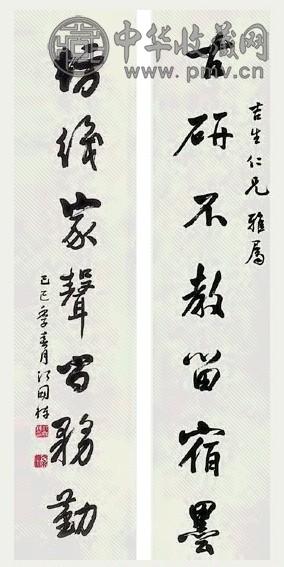 中华收藏网
www.pmv.cn
吉生仁兄雅屬
古研不教留宿墨
家聲務勤
己巳季春月